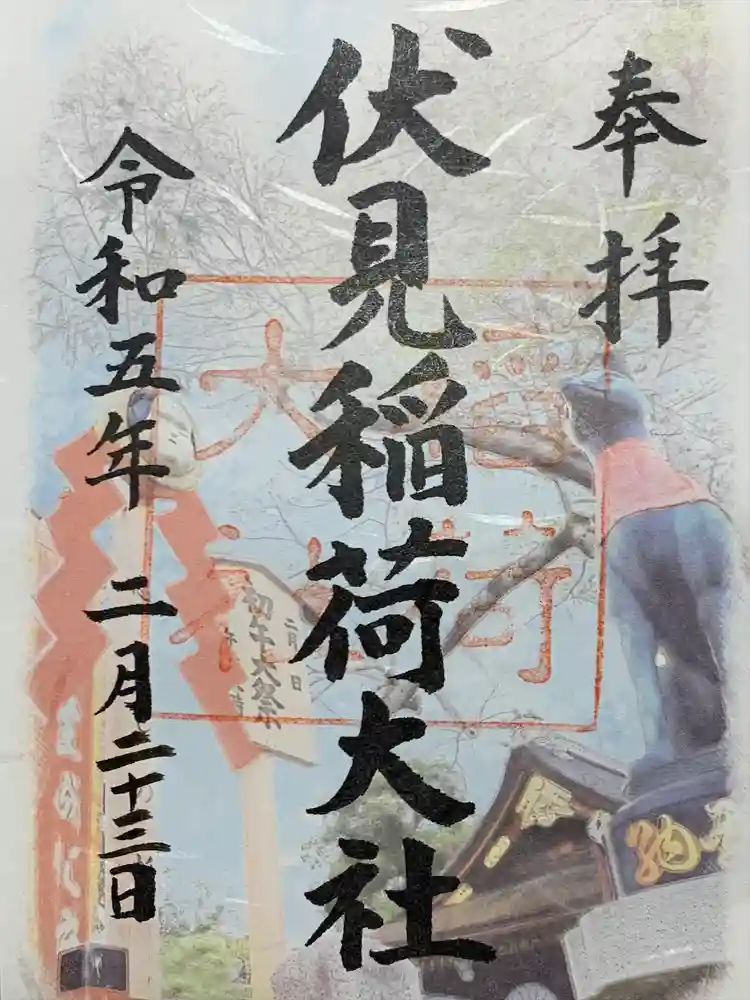 奉拝
伏見稲荷大社
令和五年 二月二十三日
初午大祭